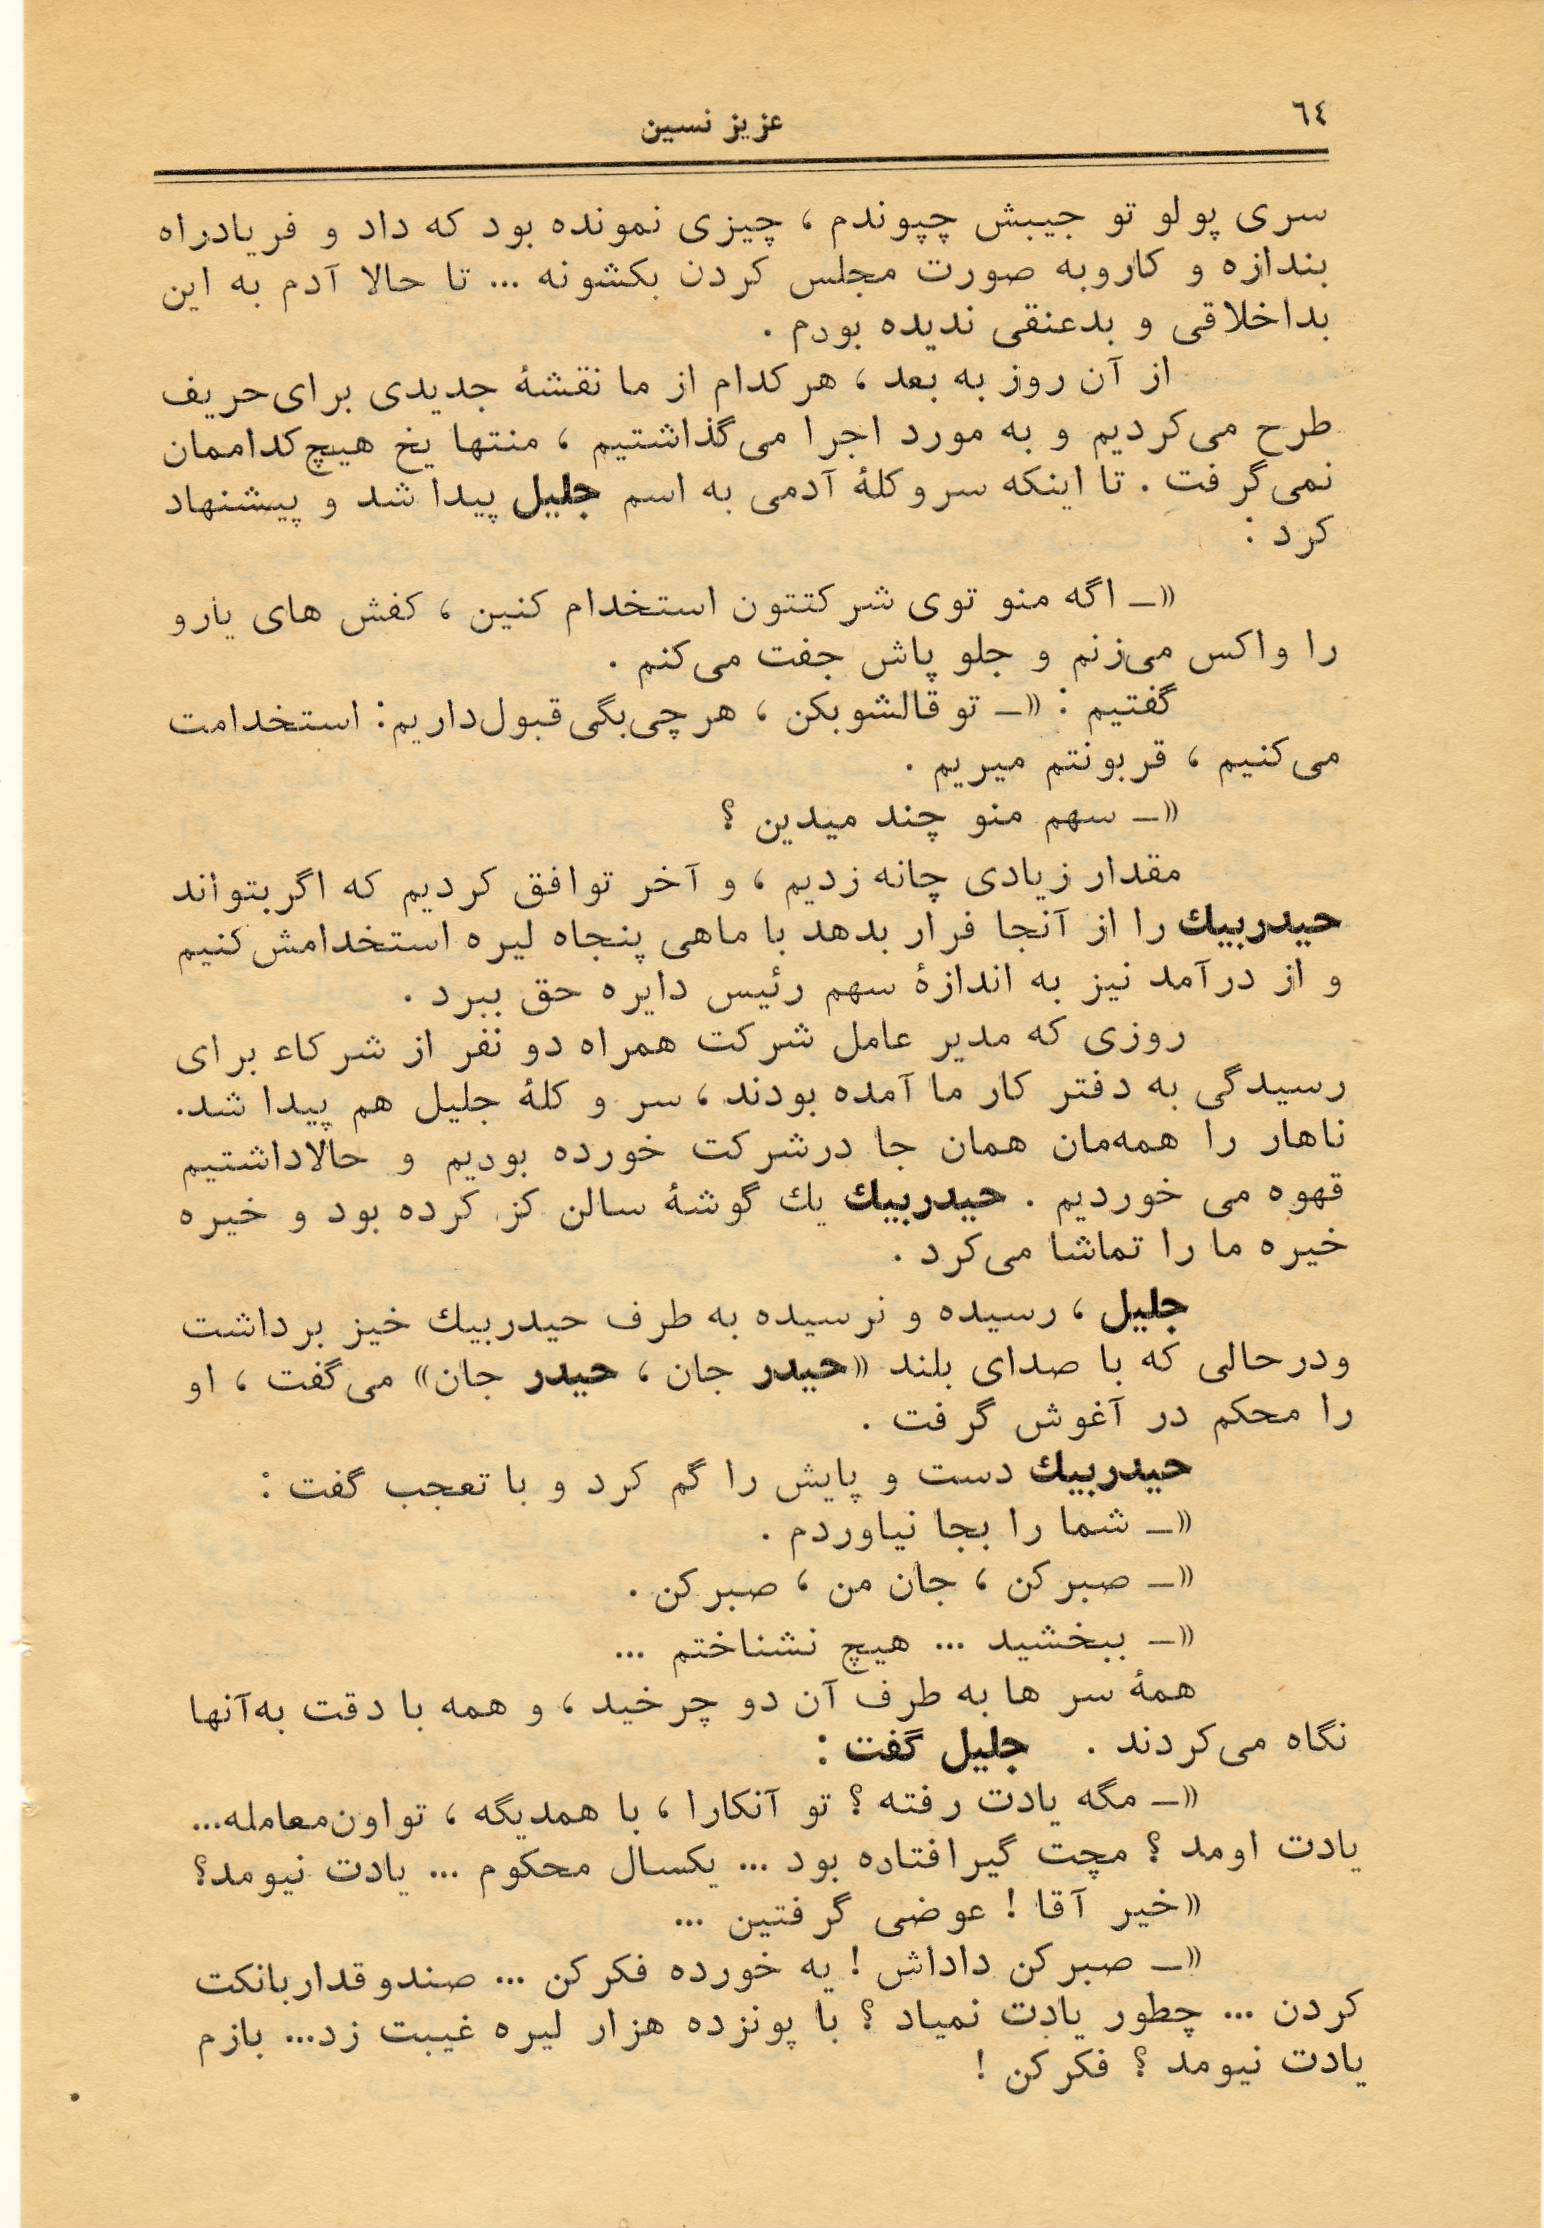 ٦٤
عزیز نسین
سری پولو تو جیبش چپوندم ، چیزی نمونده بود که داد و فریادراه
بندازه و کاروبه صورت مجلس کردن بکشونه ... تا حالا آدم به این
بداخلاقی و بدعنقی ندیده بودم .
از آن روز به بعد ، هرکدام از ما نقشهٔ جدیدی برای‌حریف
طرح می‌کردیم و به مورد اجرا می‌گذاشتیم ، منتها یخ هیچ‌کداممان
نمی‌گرفت . تا اینکه سروکلهٔ آدمی به اسم جلیل پیدا شد و پیشنهاد
کرد :
«ــ اگه منو توی شرکتتون استخدام کنین ، کفش های یارو
را واکس می‌زنم و جلو پاش جفت می‌کنم .
گفتیم : «ــ تو قالشوبکن ، هرچی‌بگی‌قبول‌داریم: استخدامت
می‌کنیم ، قربونتم میریم .
«ــ سهم منو چند میدین ؟
مقدار زیادی چانه زدیم ، و آخر توافق کردیم که اگربتواند
حیدربیك را از آنجا فرار بدهد با ماهی پنجاه لیره استخدامش‌کنیم
و از درآمد نیز به اندازهٔ سهم رئیس دایره حق ببرد .
روزی که مدیر عامل شرکت همراه دو نفر از شرکاء برای
رسیدگی به دفتر کار ما آمده بودند ، سر و کلهٔ جلیل هم پیدا شد.
ناهار را همه‌مان همان جا درشرکت خورده بودیم و حالاداشتیم
قهوه می خوردیم . حیدربیك یك گوشهٔ سالن کز کرده بود و خیره
خیره ما را تماشا می‌کرد .
جلیل ، رسیده و نرسیده به طرف حیدربیك خیز برداشت
ودرحالی که با صدای بلند «حیدر جان ، حیدر جان» می‌گفت ، او
را محکم در آغوش گرفت .
حیدربیك دست و پایش را گم کرد و با تعجب گفت :
«ــ شما را بجا نیاوردم .
«ــ صبرکن ، جان من ، صبرکن .
«ــ ببخشید ... هیچ نشناختم ...
همهٔ سر ها به طرف آن دو چرخید ، و همه با دقت به‌آنها
نگاه می‌کردند . جلیل گفت :
«ــ مگه یادت رفته ؟ تو آنکارا ، با همدیگه ، تواون‌معامله...
یادت اومد ؟ مچت گیرافتاده بود ... یکسال محکوم ... یادت نیومد؟
«خیر آقا ! عوضی گرفتین ...
«ــ صبرکن داداش ! یه خورده فکرکن ... صندوقداربانکت
کردن ... چطور یادت نمیاد ؟ با پونزده هزار لیره غیبت زد... بازم
یادت نیومد ؟ فکرکن !